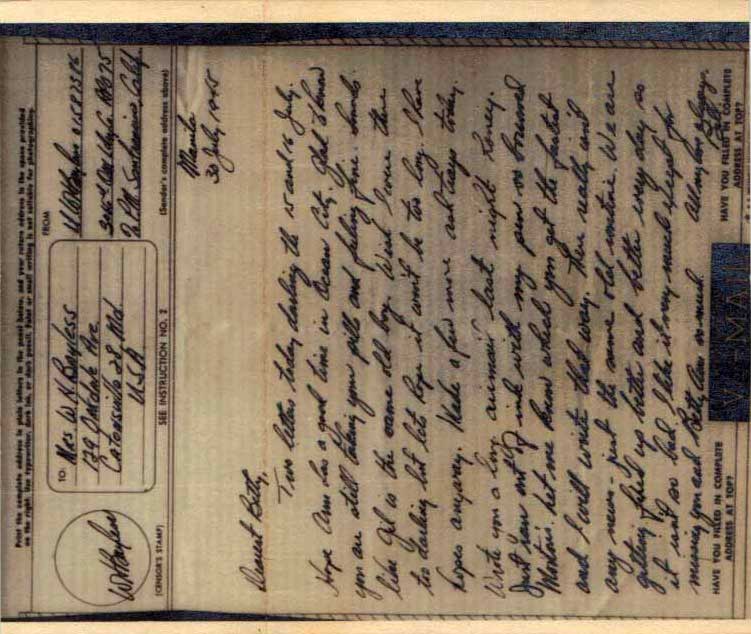 Print the complete address in plain letters in the panel below, and your return address in the space provided
on the right. Use typewriter, dark ink, or dark pencil. Faint or small writing is not suitable for photographing.
FROM
TO:
Mrs W. K. Bayless
139 Oakdale Ave
Catonsville 28 Md.
U.S.A
W K Bayless
APO 75
% P.M. San Francisco, Calif.
(CENSOR'S STAMP)
SEE INSTRUCTION NO. 2
(Sender's complete address above)
Manila
30 July, 1945
Dearest Betty,
Two letters today darling the 15 and 16 July.
Hope Ann has a good time in Ocean City. Glad to know
you are still taking your pills and feeling fine. Sounds
like Gil is the same old boy. Wish I were there
too darling but lets hope it won't be too long. I have
hopes anyway. Made a few more today.
Wrote you a long airmail last night honey.
Just ran out of ink with my pen so borrowed
Morton's. Let me know which you get the fastest
and I will write that way. There really isn't
any news - just the same old routine. We are
getting fixed up better and better every day so
it isn't so bad. I like it very much except for
missing you and Betty Ann so much.
All my love always,
HAVE YOU FILLED IN COMPLETE
ADDRESS AT TOP?
V-MAIL
HAVE YOU FILLED IN COMPLETE
ADDRESS AT TOP?